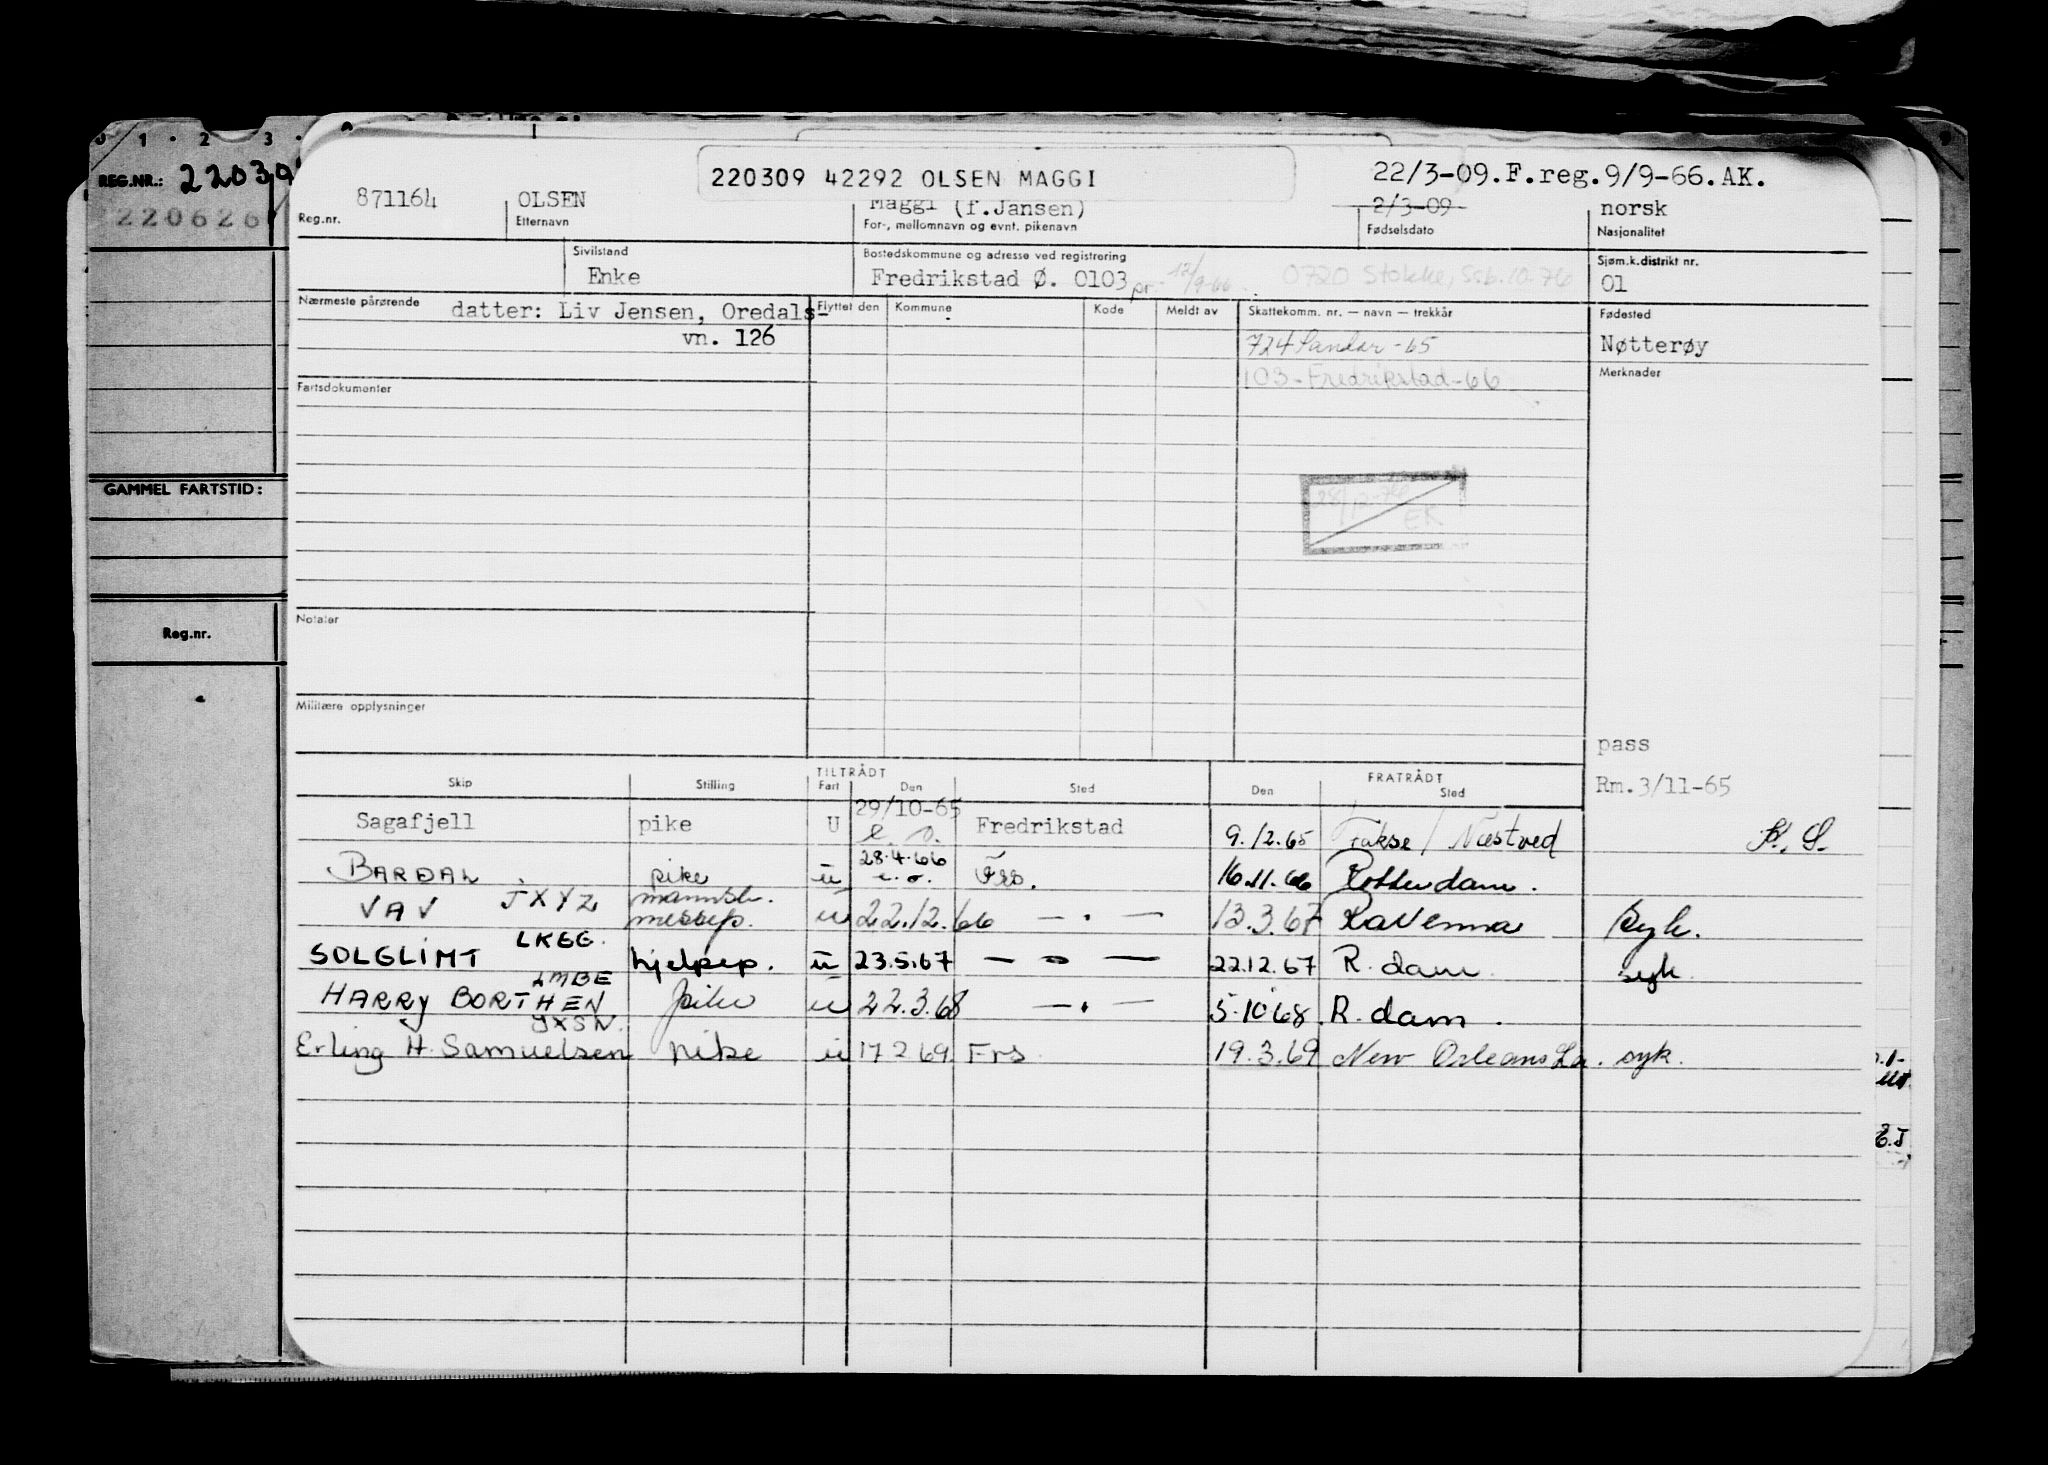 0 1 2 3
REG.NR.: 22030
220626
GAMMEL FARTSTID:
Reg.nr.
220309 42292 OLSEN MAGGI
22/3-09.F.reg.9/9-66.AK.
871164 OLSEN Maggi (f.Jansen) 2/3-09 norsk
Reg.nr. Etternavn For-, mellomnavn og evnt. pikenavn Fødselsdato Nasjonalitet
Sivilstand Bostedskommune og adresse ved registrering Sjøm.k.distrikt nr.
Enke Fredrikstad Ø. 0103 pr. 12/9-66 0720 Stokke, Ssb.10.76 01
Nærmeste pårørende datter: Liv Jensen, Oredals-
vn. 126
Flyttet den Kommune Kode Meldt av Skattekomm. nr. — navn — trekkår Fødested
724 Sandar-65 Nøtterøy
103-Fredrikstad-66 Merknader
Fartsdokumenter
28/12-76
EK
Notater
Militære opplysninger
pass
Rm.3/11-65
TILTRÅDT FRATRÅDT
Skip Stilling Fart Den Sted Den Sted
Sagafjell pike U 29/10-65 Fredrikstad 9.12.65 Fakse / Næstved K.S.
BARDAL pike u 28.4.66 Frs. 16.11.66 Rotterdam.
JXYZ
VAV messep. u 22.12.66 — . — 13.3.67 Ravenna syk.
LKGG.
SOLGLIMT hjelpep. u 23.5.67 — o — 22.12.67 R.dam syk.
LMBE
HARRY BORTHEN pike u 22.3.68 — . — 5.10.68. R.dam.
JXSN.
Erling H. Samuelsen pike u 17 2 69 Frs 19.3.69 New Orleans La. syk.